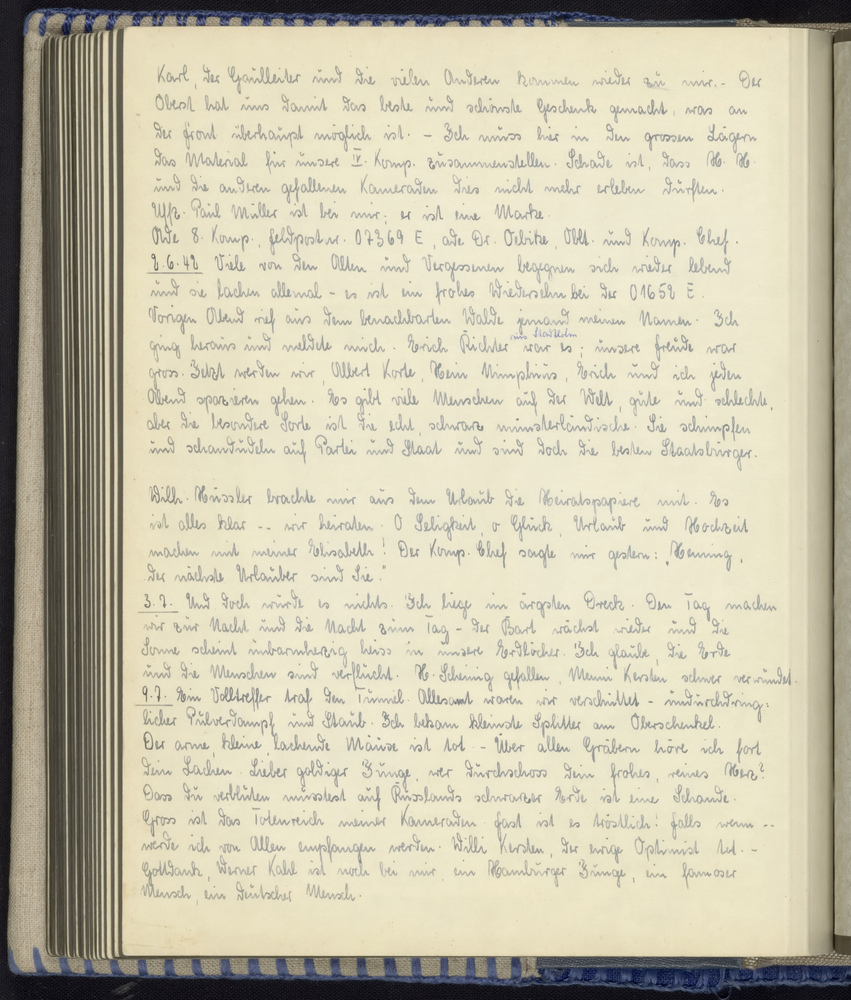 Karl, der Gaulleiter und die vielen Anderen kommen wieder zu mir. - Der
Oberst hat uns damit das beste und schönste Geschenk gemacht, was an
der Front überhaupt möglich ist. - Ich muss hier in den grossen Lägern
das Material für unsere IV. Komp. zusammenstellen. Schade ist, dass H. H.
und die anderen gefallenen Kameraden dies nicht mehr erleben durften.
Uffz. Paul Müller ist bei mir; er ist eine Marke.
Ade 8. Komp., Feldpostnr. 07369 E, ade Dr. Oebike, Oblt. und Komp. Chef.
2.6.42 Viele von den Alten und Vergessenen begegnen sich wieder lebend
und sie lachen allemal - es ist ein frohes Wiedersehn bei der 01652 E.
Vorigen Abend rief aus dem benachbarten Walde jemand meinen Namen. Ich
aus Stadtlohn
ging heraus und meldete mich. Erich Richter war es; unsere Freude war
gross. Jetzt werden wir, Albert Korte, Hein Nimphius, Erich und ich jeden
Abend spazieren gehen. Es gibt viele Menschen auf der Welt, gute und schlechte,
aber die besondere Sorte ist die echt, schwarz münsterländische. Sie schimpfen
und schandudeln auf Partei und Staat und sind doch die besten Staatsbürger.
Wilh. Hüssler brachte mir aus dem Urlaub die Heiratspapiere mit. Es
ist alles klar -- wir heiraten. O Seligkeit, o Glück, Urlaub und Hochzeit
machen mit meiner Elisabeth! Der Komp. Chef sagte mir gestern: "Henning,
der nächste Urlauber sind Sie."
3.7. Und doch wurde es nichts. Ich liege im ärgsten Dreck. Den Tag machen
wir zur Nacht und die Nacht zum Tag - der Bart wächst wieder und die
Sonne scheint unbarmherzig heiss in unsere Erdlöcher. Ich glaube, die Erde
und die Menschen sind verflucht. H. Scheinig gefallen, Menni Kersten schwer verwundet.
9.7. Ein Volltreffer traf den Tunnel. Allesamt waren wir verschüttet - undurchdring-
licher Pulverdampf und Staub. Ich bekam kleinste Splitter am Oberschenkel.
Der arme kleine lachende Mäuse ist tot. - Über allen Gräbern höre ich fort
Dein Lachen. Lieber goldiger Junge, wer durchschoss Dein frohes, reines Herz?
Dass Du verbluten musstest auf Russlands schwarzer Erde ist eine Schande.
Gross ist das Totenreich meiner Kameraden. Fast ist es tröstlich! Falls wenn --
werde ich von Allen empfangen werden. Willi Kersten, der ewige Optimist tot. -
Gottdank, Werner Kahl ist noch bei mir, ein Hamburger Junge, ein famoser
Mensch, ein deutscher Mensch.